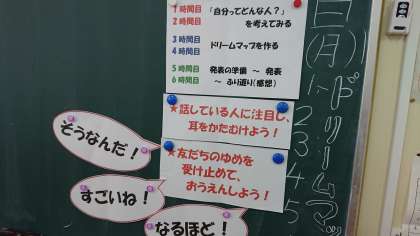 1時間目 「自分ってどんな人？」
2時間目 を考えてみる
3時間目
4時間目 ドリームマップを作る
5時間目 発表の準備 ～ 発表
6時間目 ～ ふり返り(感想)
★話している人に注目し、
耳をかたむけよう！
★友だちのゆめを
受け止めて、
おうえんしよう！
そうなんだ！
すごいね！
なるほど！
日(月)
1～ドリームマッ
2
3
4
5